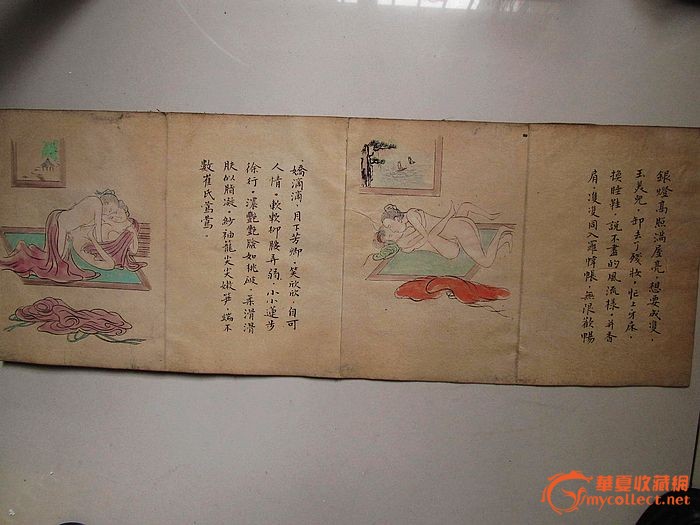 銀燈高照滿屋亮，想要成雙，
玉美兒，卸去了殘妝，忙上牙床，
換睡鞋，說不盡的風流樣，并香
肩，雙雙同入羅幃帳，無限歡暢
嬌滴滴，月下芳卿，笑欣欣，自可
人情。軟軟柳腰弄弱，小小蓮步
徐行。濃艷艷臉如桃破，柔滑滑
肤似脂凝。紗袖籠尖尖嫩笋，端不
數崔氏鶯鶯。
華夏收藏網
mycollect.net